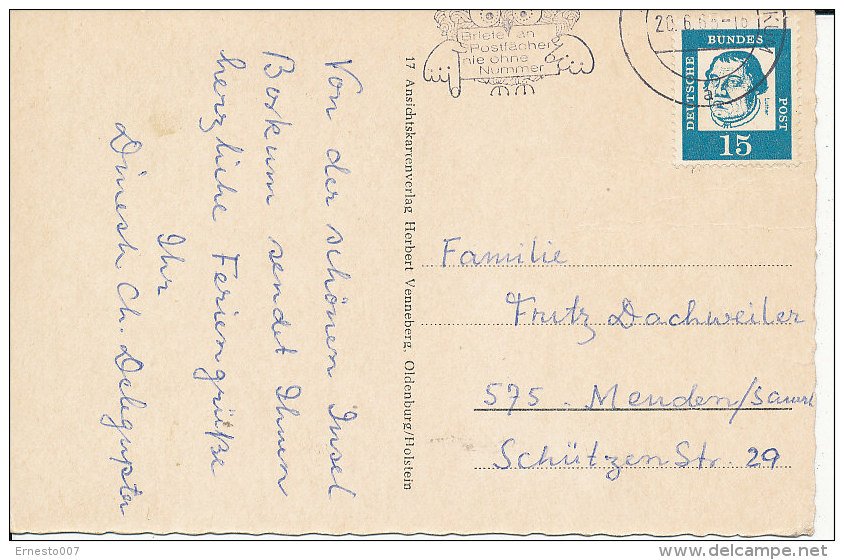 Briefe an
Postfächer
nie ohne
Nummer
DEUTSCHE
BUNDES
POST
Luther
15
Von der schönen Insel
Borkum sendet Ihnen
herzliche Feriengrüße
Ihr
Dinesh Ch.
17 Ansichtskartenverlag Herbert Venneberg, Oldenburg/Holstein
Familie
Fritz Dachweiler
575 - Menden/Sauerl
Schützen Str 29
Ernesto007
www.delcampe.net